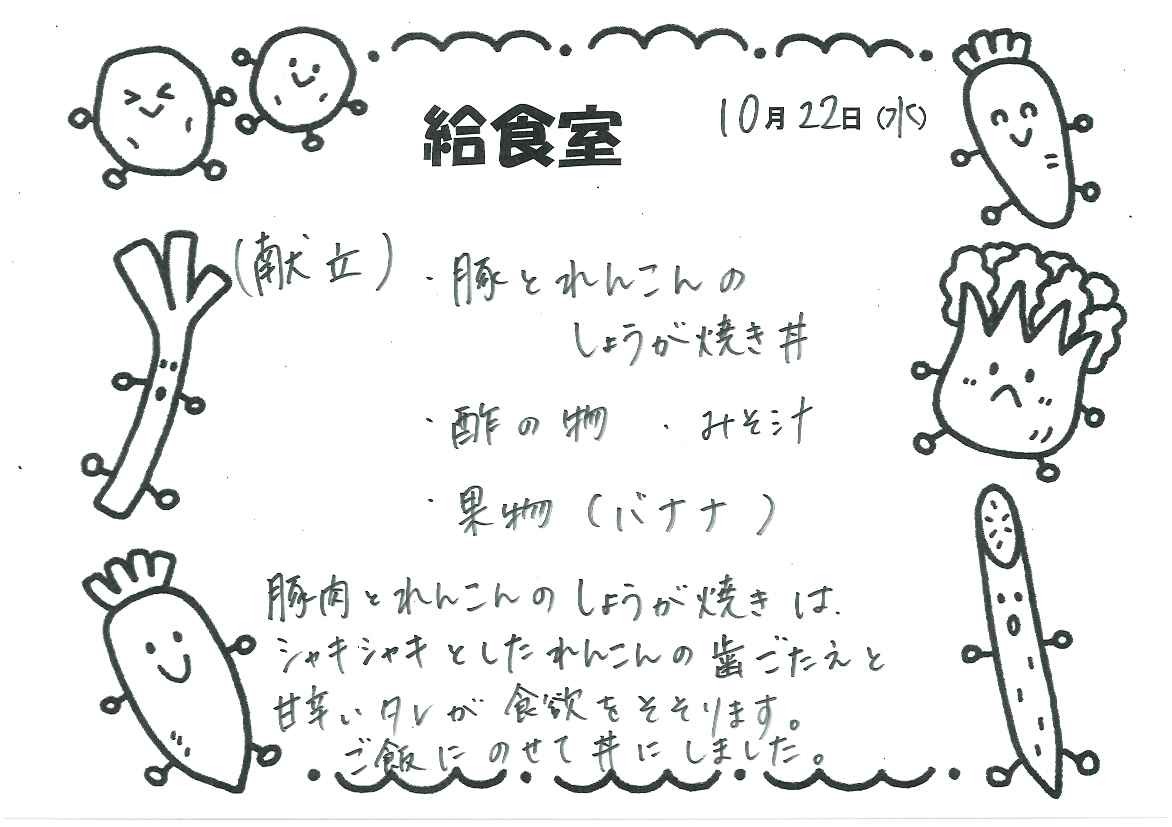 給食室
10月22日(水)
(献立)・豚とれんこんの
しょうが焼き丼
・酢の物 ・みそ汁
・果物(バナナ)
豚肉とれんこんのしょうが焼きは、
シャキシャキとしたれんこんの歯ごたえと
甘辛いタレが食欲をそそります。
ご飯にのせて丼にしました。